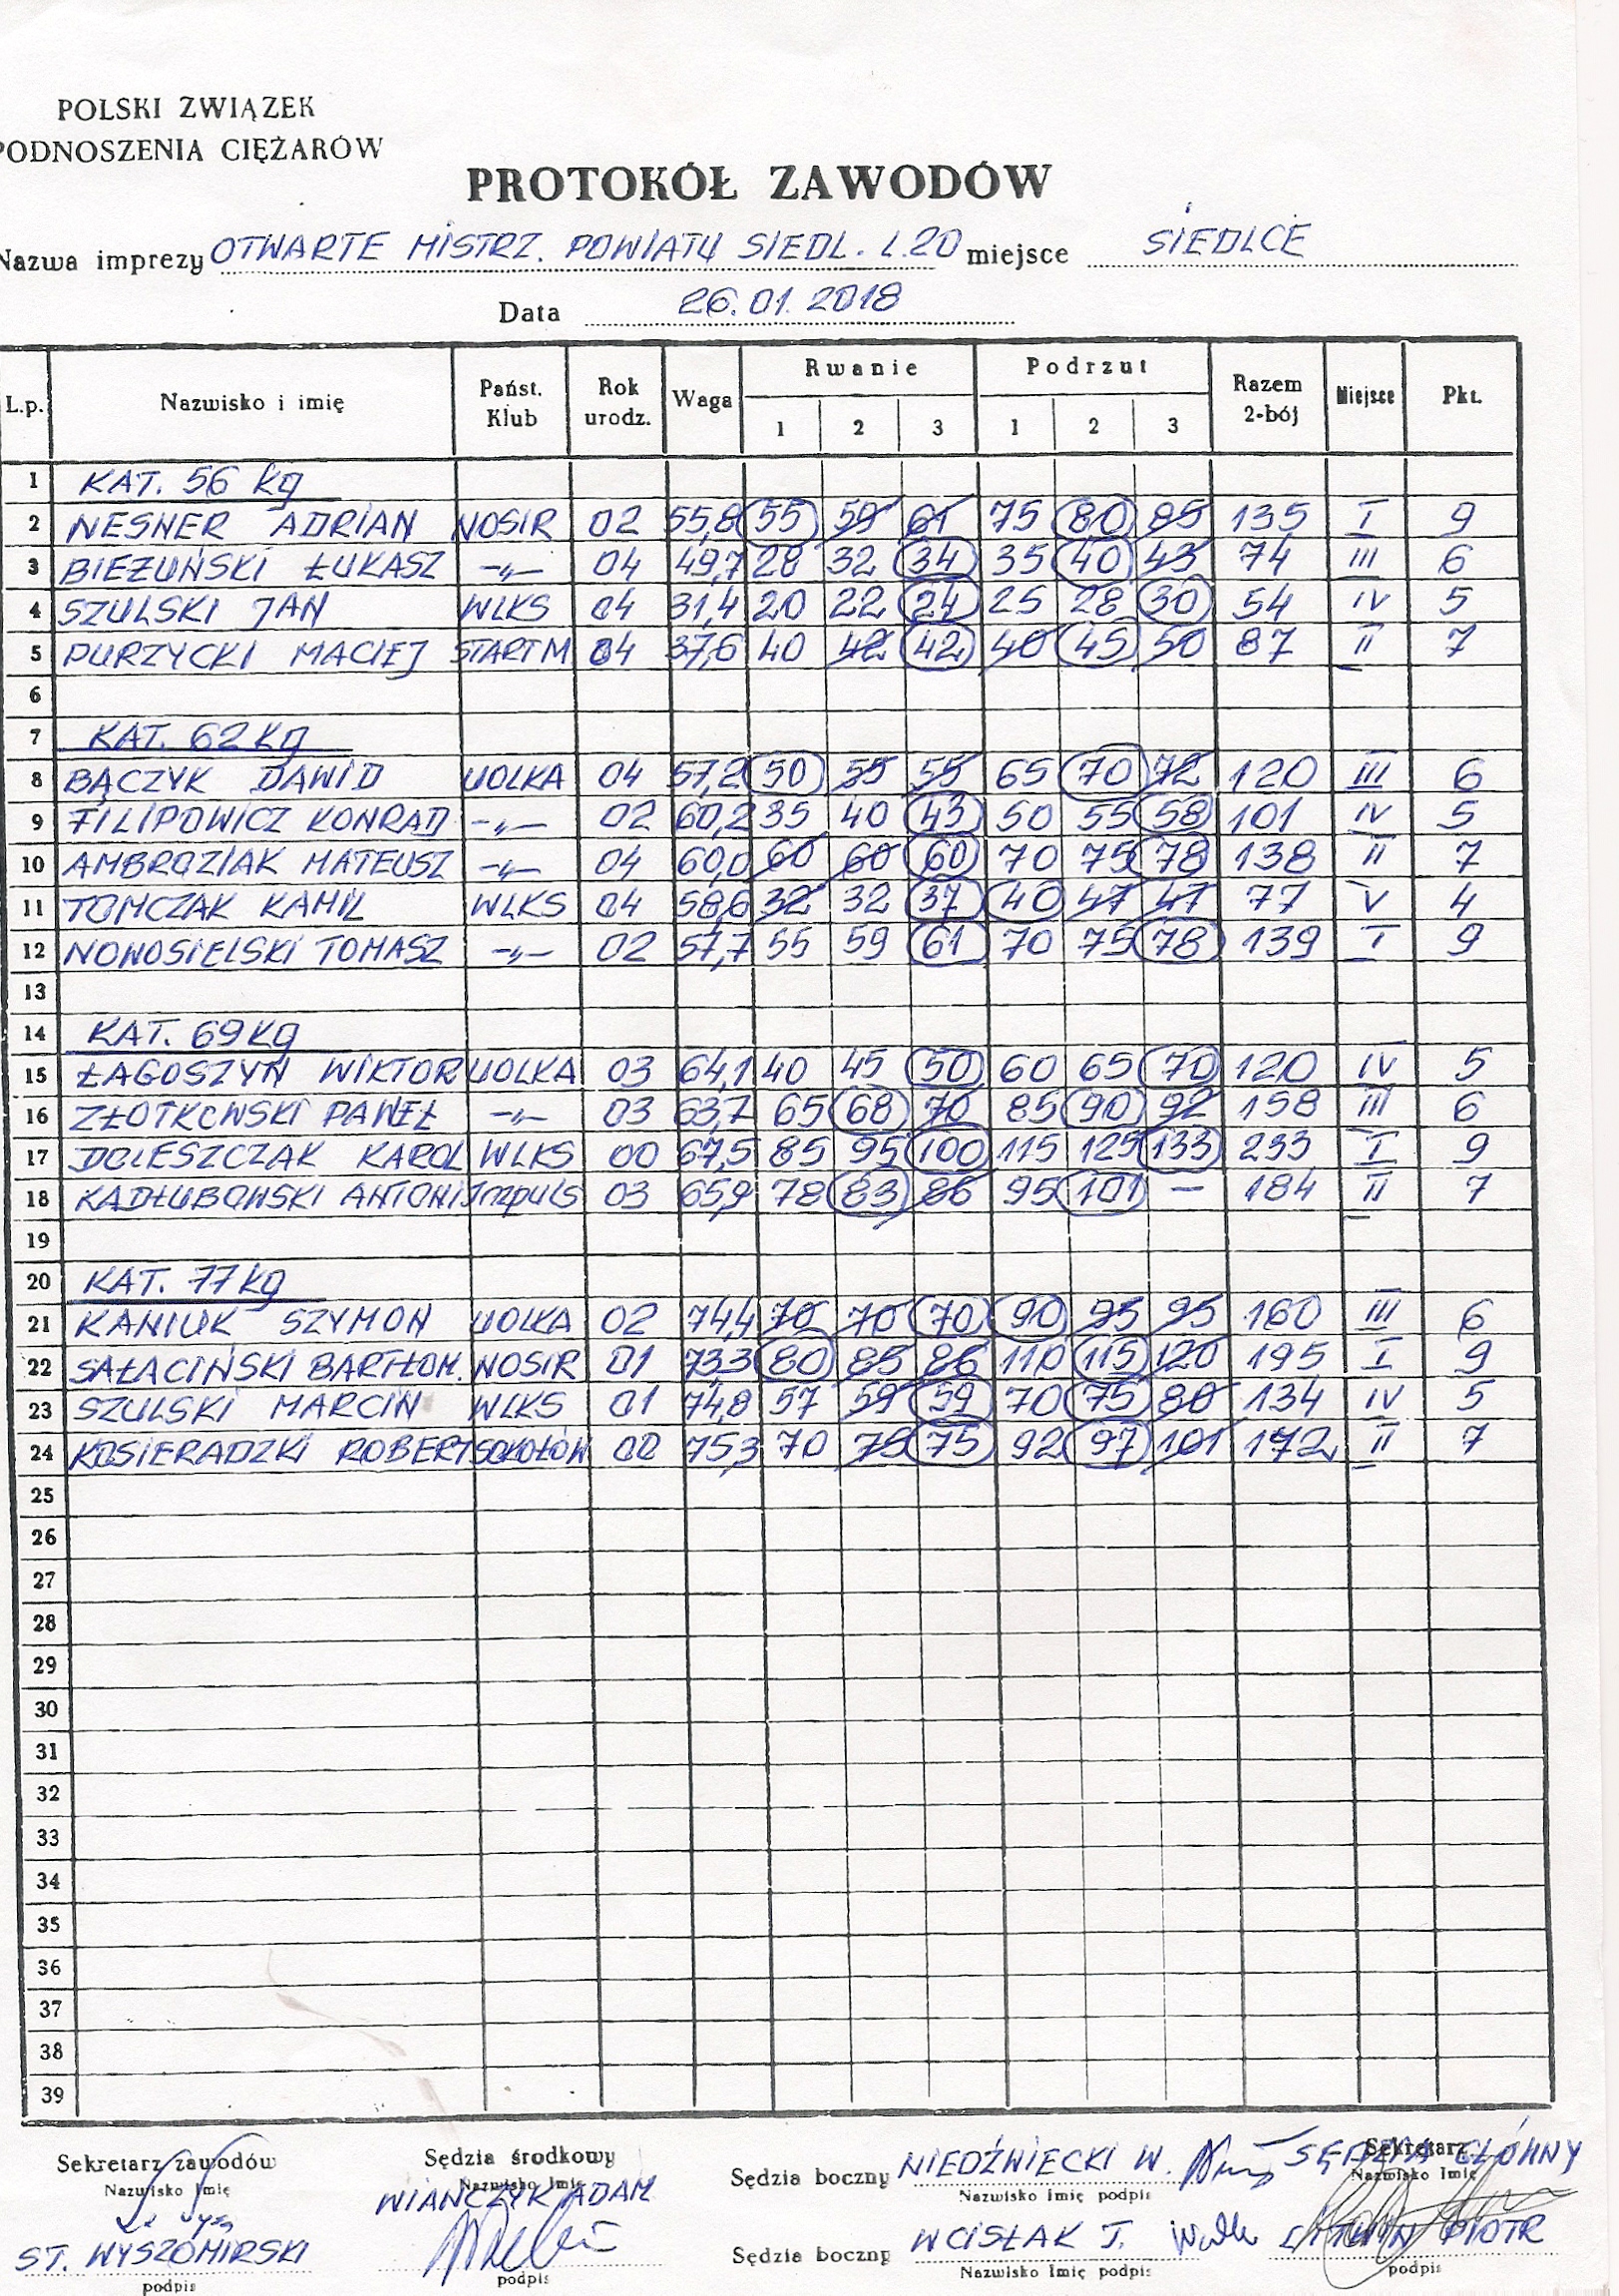 POLSKI ZWIĄZEK
PODNOSZENIA CIĘŻARÓW
PROTOKÓŁ ZAWODÓW
Nazwa imprezy OTWARTE MISTRZ. POWIATU SIEDL. L.20 miejsce SIEDLCE
Data 26.01.2018
L.p. Nazwisko i imię Państ. Klub Rok urodz. Waga Rwanie 1 2 3 Podrzut 1 2 3 Razem 2-bój Miejsce Pkt.
1 KAT. 56 kg
2 NESNER ADRIAN NOSIR 02 55,8 55 59 61 75 80 85 135 I 9
3 BIEŻUŃSKI ŁUKASZ -„- 04 49,7 28 32 34 35 40 43 74 III 6
4 SZULSKI JAN WLKS 04 31,4 20 22 24 25 28 30 54 IV 5
5 PURZYCKI MACIEJ START M 04 37,6 40 42 42 40 45 50 87 II 7
6
7 KAT. 62 kg
8 BĄCZYK DAWID UOLKA 04 57,2 50 55 55 65 70 72 120 III 6
9 FILIPOWICZ KONRAD -„- 02 60,2 35 40 43 50 55 58 101 IV 5
10 AMBROZIAK MATEUSZ -„- 04 60,0 60 60 60 70 75 78 138 II 7
11 TOMCZAK KAMIL WLKS 04 58,6 32 32 37 40 47 47 77 V 4
12 NOWOSIELSKI TOMASZ -„- 02 57,7 55 59 61 70 75 78 139 I 9
13
14 KAT. 69 kg
15 ŁAGOSZYN WIKTOR UOLKA 03 64,1 40 45 50 60 65 70 120 IV 5
16 ZŁOTKOWSKI PAWEŁ -„- 03 63,7 65 68 70 85 90 92 158 III 6
17 DOLESZCZAK KAROL WLKS 00 67,5 85 95 100 115 125 133 233 I 9
18 KADŁUBOWSKI ANTONI Impuls 03 65,9 78 83 86 95 101 — 184 II 7
19
20 KAT. 77 kg
21 KANIUK SZYMON UOLKA 02 74,4 70 70 70 90 95 95 160 III 6
22 SAŁACIŃSKI BARTŁOM. NOSIR 01 73,3 80 85 86 110 115 120 195 I 9
23 SZULSKI MARCIN WLKS 01 74,8 57 59 59 70 75 80 134 IV 5
24 KOSIERADZKI ROBERT SOKOŁÓW 00 75,3 70 75 75 92 97 101 172 II 7
25
26
27
28
29
30
31
32
33
34
35
36
37
38
39
Sekretarz zawodów Sędzia środkowy Sędzia boczny NIEDŹWIECKI W. SĘDZIA GŁÓWNY Sekretarz
Nazwisko Imię Nazwisko Imię Nazwisko Imię podpis Nazwisko Imię
WIAŃCZYK ADAM
ST. WYSZOMIRSKI Sędzia boczny WCISŁAK J. LITWIN PIOTR
podpis podpis Nazwisko Imię podpis podpis